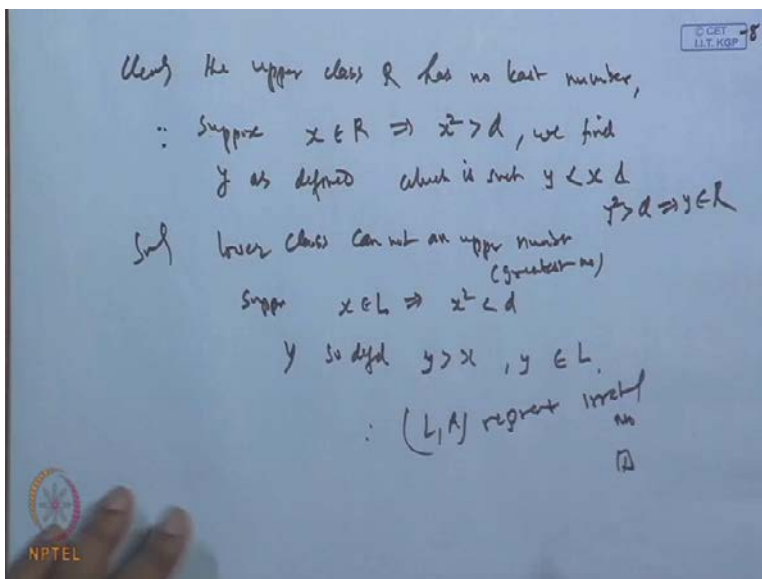 © CET
I.I.T. KGP -8
Clearly the upper class R has no least number,
∵ Suppose x ∈ R ⇒ x² > d, we find
y as defined which is such y < x &
y² > d ⇒ y ∈ R
lower class can not an upper number
(greatest no)
Suppose x ∈ L ⇒ x² < d
y so defd y > x, y ∈ L.
∴ (L, R) represent irrational
no
NPTEL